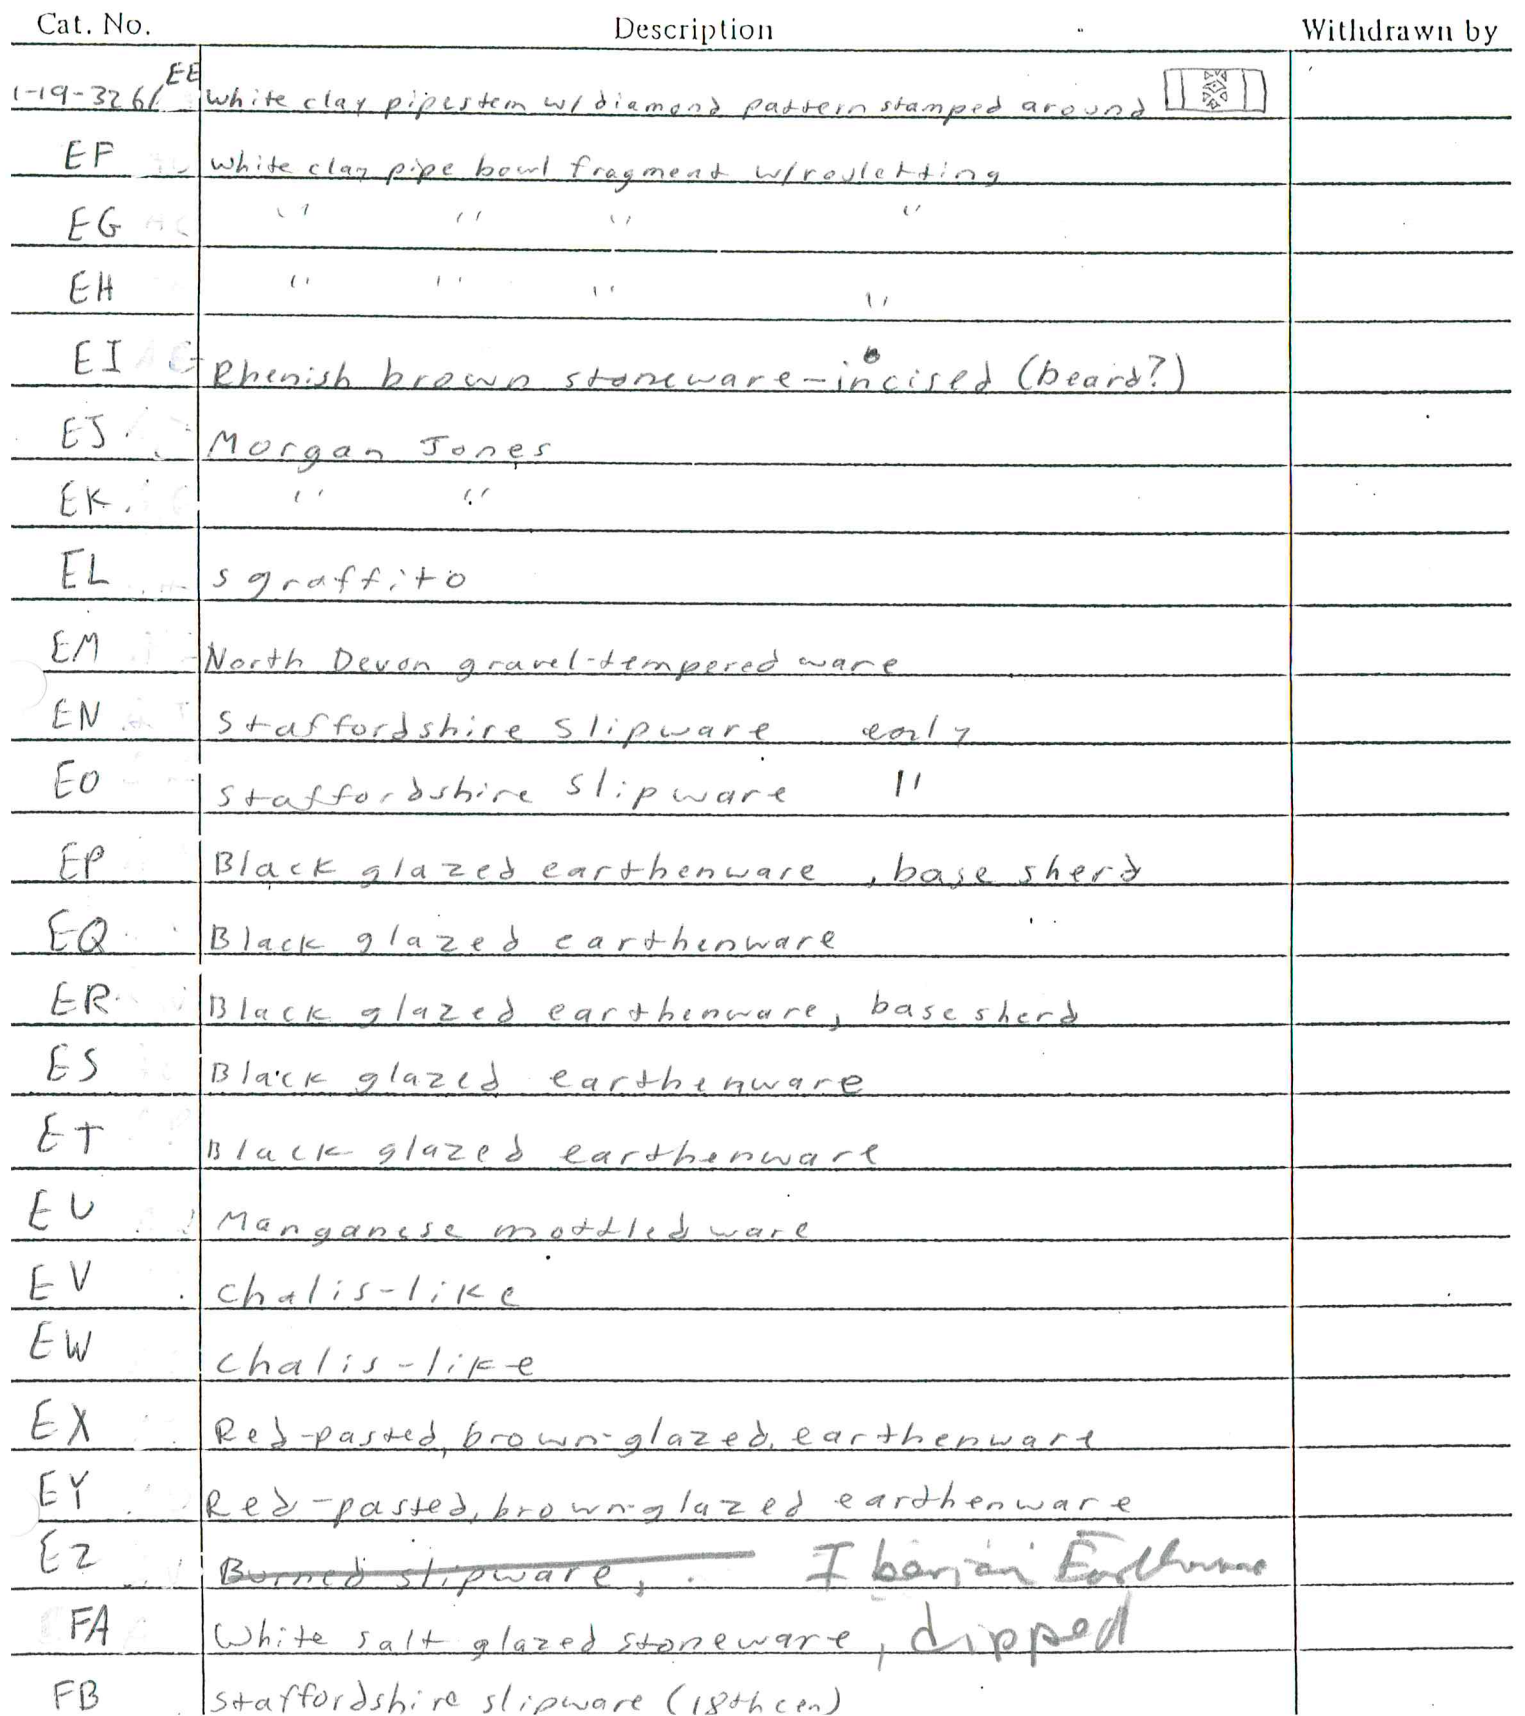 Cat. No. Description Withdrawn by
1-19-326/EE White clay pipestem w/diamond pattern stamped around
EF White clay pipe bowl fragment w/rouletting
EG " " " "
EH " " " "
EI Rhenish brown stoneware-incised (beard?)
EJ Morgan Jones
EK " "
EL sgraffito
EM North Devon gravel-tempered ware
EN Staffordshire Slipware early
EO Staffordshire Slipware "
EP Black glazed earthenware, base sherd
EQ Black glazed earthenware
ER Black glazed earthenware, base sherd
ES Black glazed earthenware
ET Black glazed earthenware
EU Manganese mottled ware
EV Chalis-like
EW Chalis-like
EX Red-pasted, brown-glazed, earthenware
EY Red-pasted, brown-glazed earthenware
EZ Burned slipware, Iberian Earthenware
FA White salt glazed stoneware, dipped
FB Staffordshire slipware (18th cen)